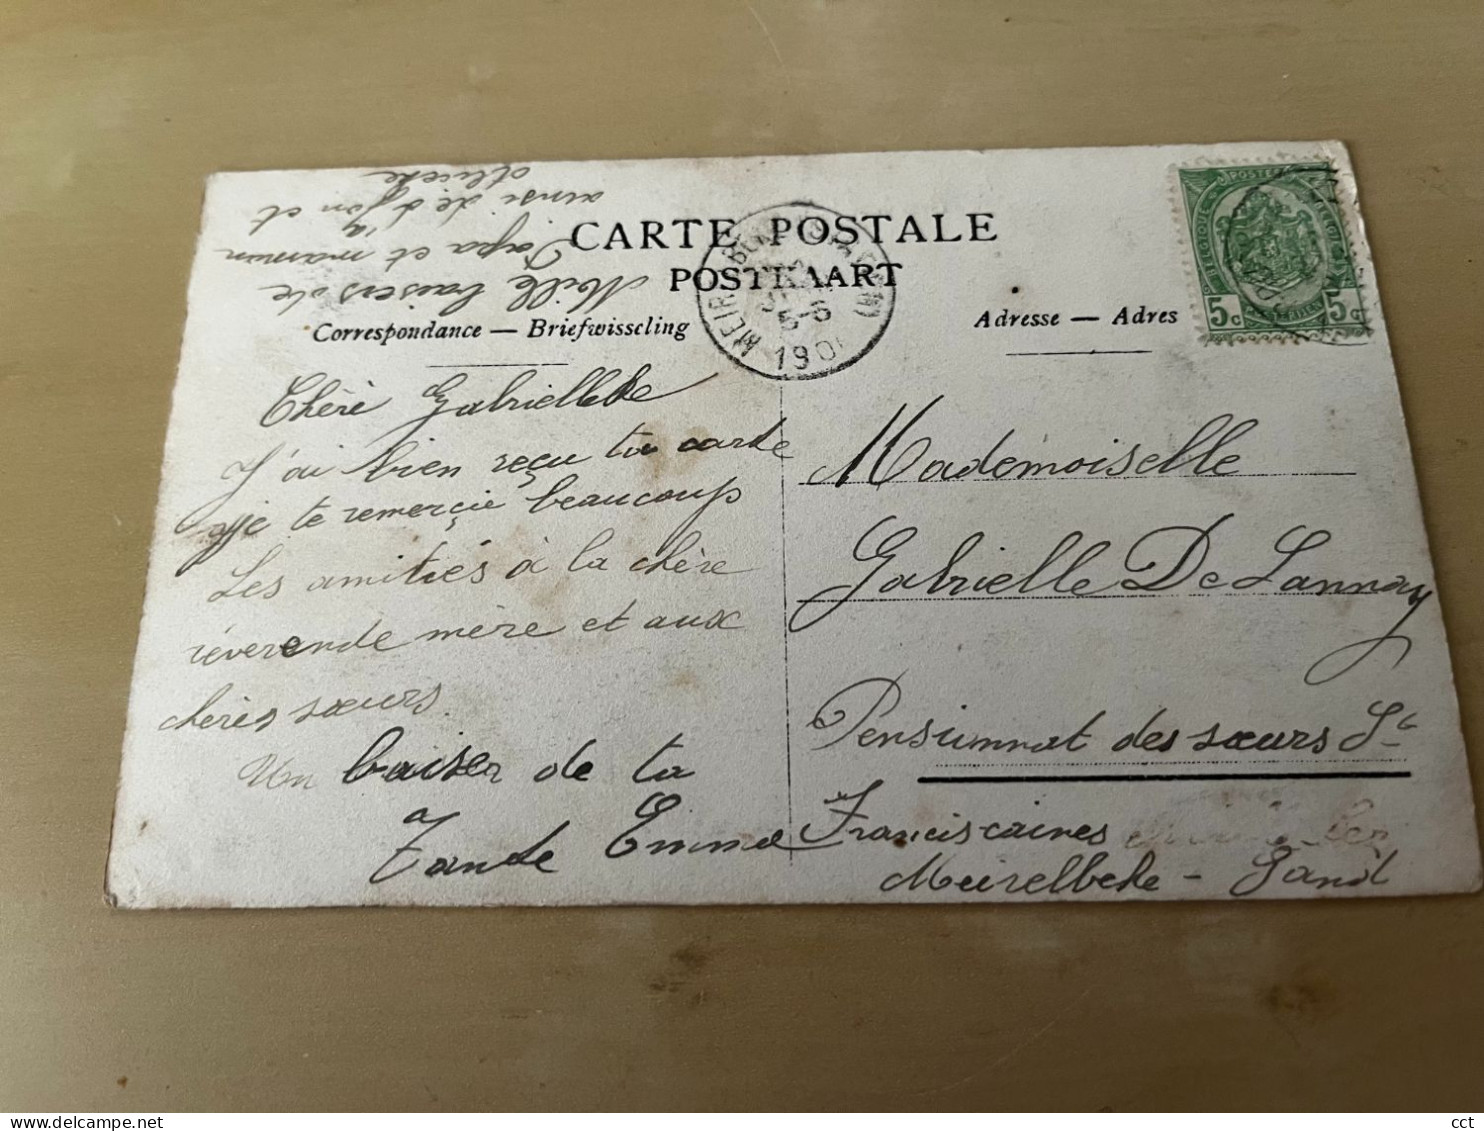 CARTE POSTALE
POSTKAART
Correspondance — Briefwisseling
Adresse — Adres
5c 5c
1908
Chère Gabrielleke
J'ai bien reçu ta carte
je te remerçie beaucoup
Les amitiés à la chère
réverende mère et aux
chères sœurs.
Un baiser de ta
Tante Emma
Mille baisers de
Papa et maman
ainsi de
et
Mademoiselle
Gabrielle De Lannoy
Pensionnat des sœurs St
Franciscaines
Meirelbeke - Gand
cct